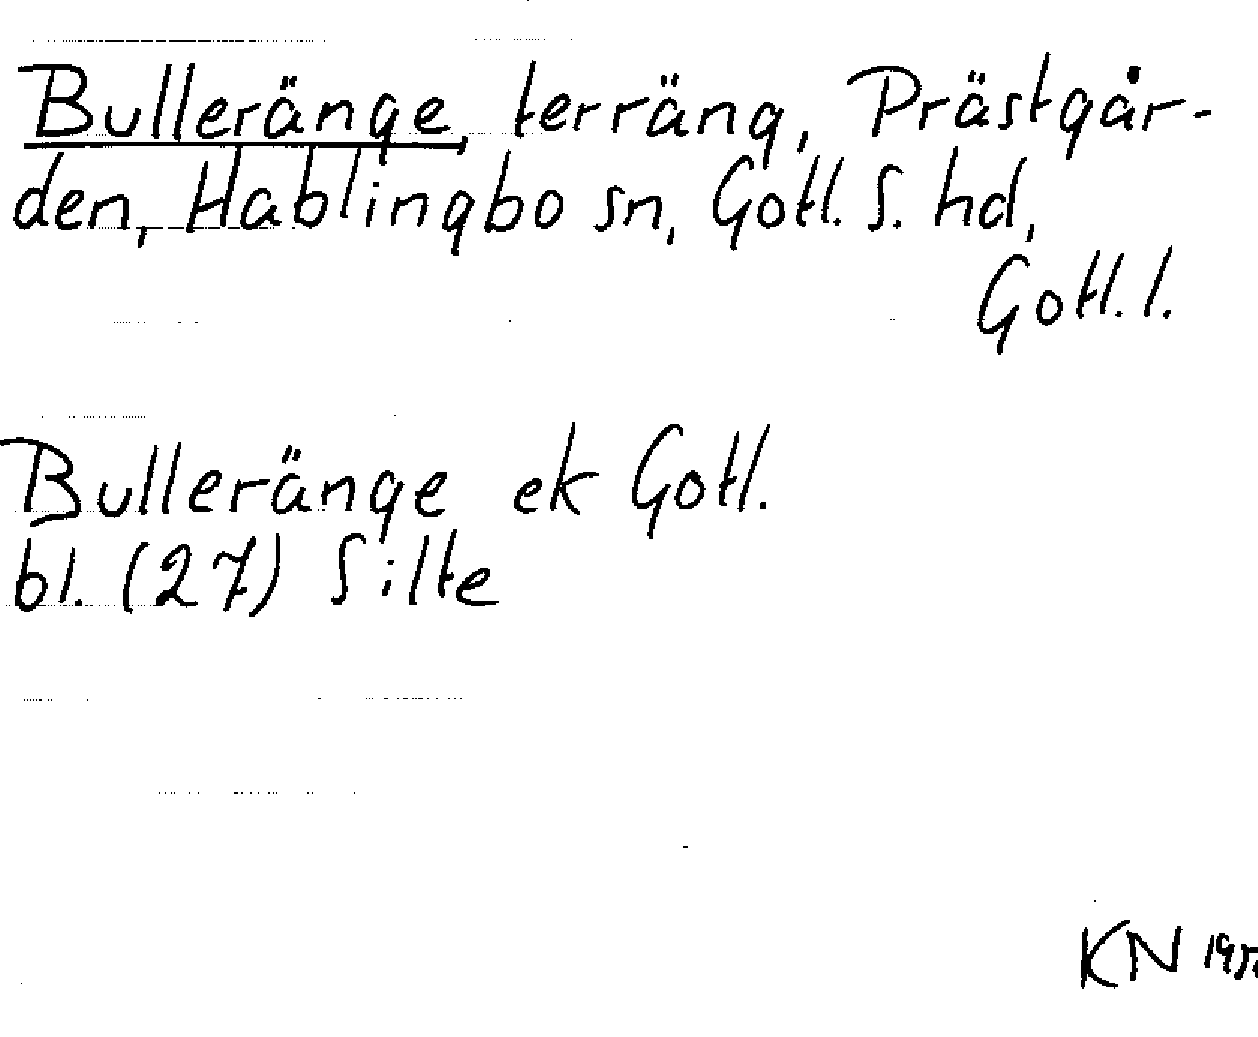 Bulleränge, terräng, Prästgår-
den, Hablingbo sn, Gotl. S. hd,
Gotl. l.
Bulleränge ek Gotl.
bl. (27) Silte
KN